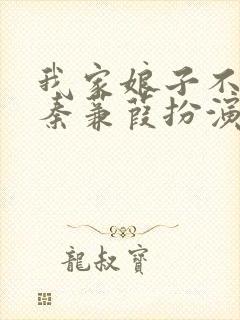 我家娘子不
秦蒹葭扮演
龍叔寶